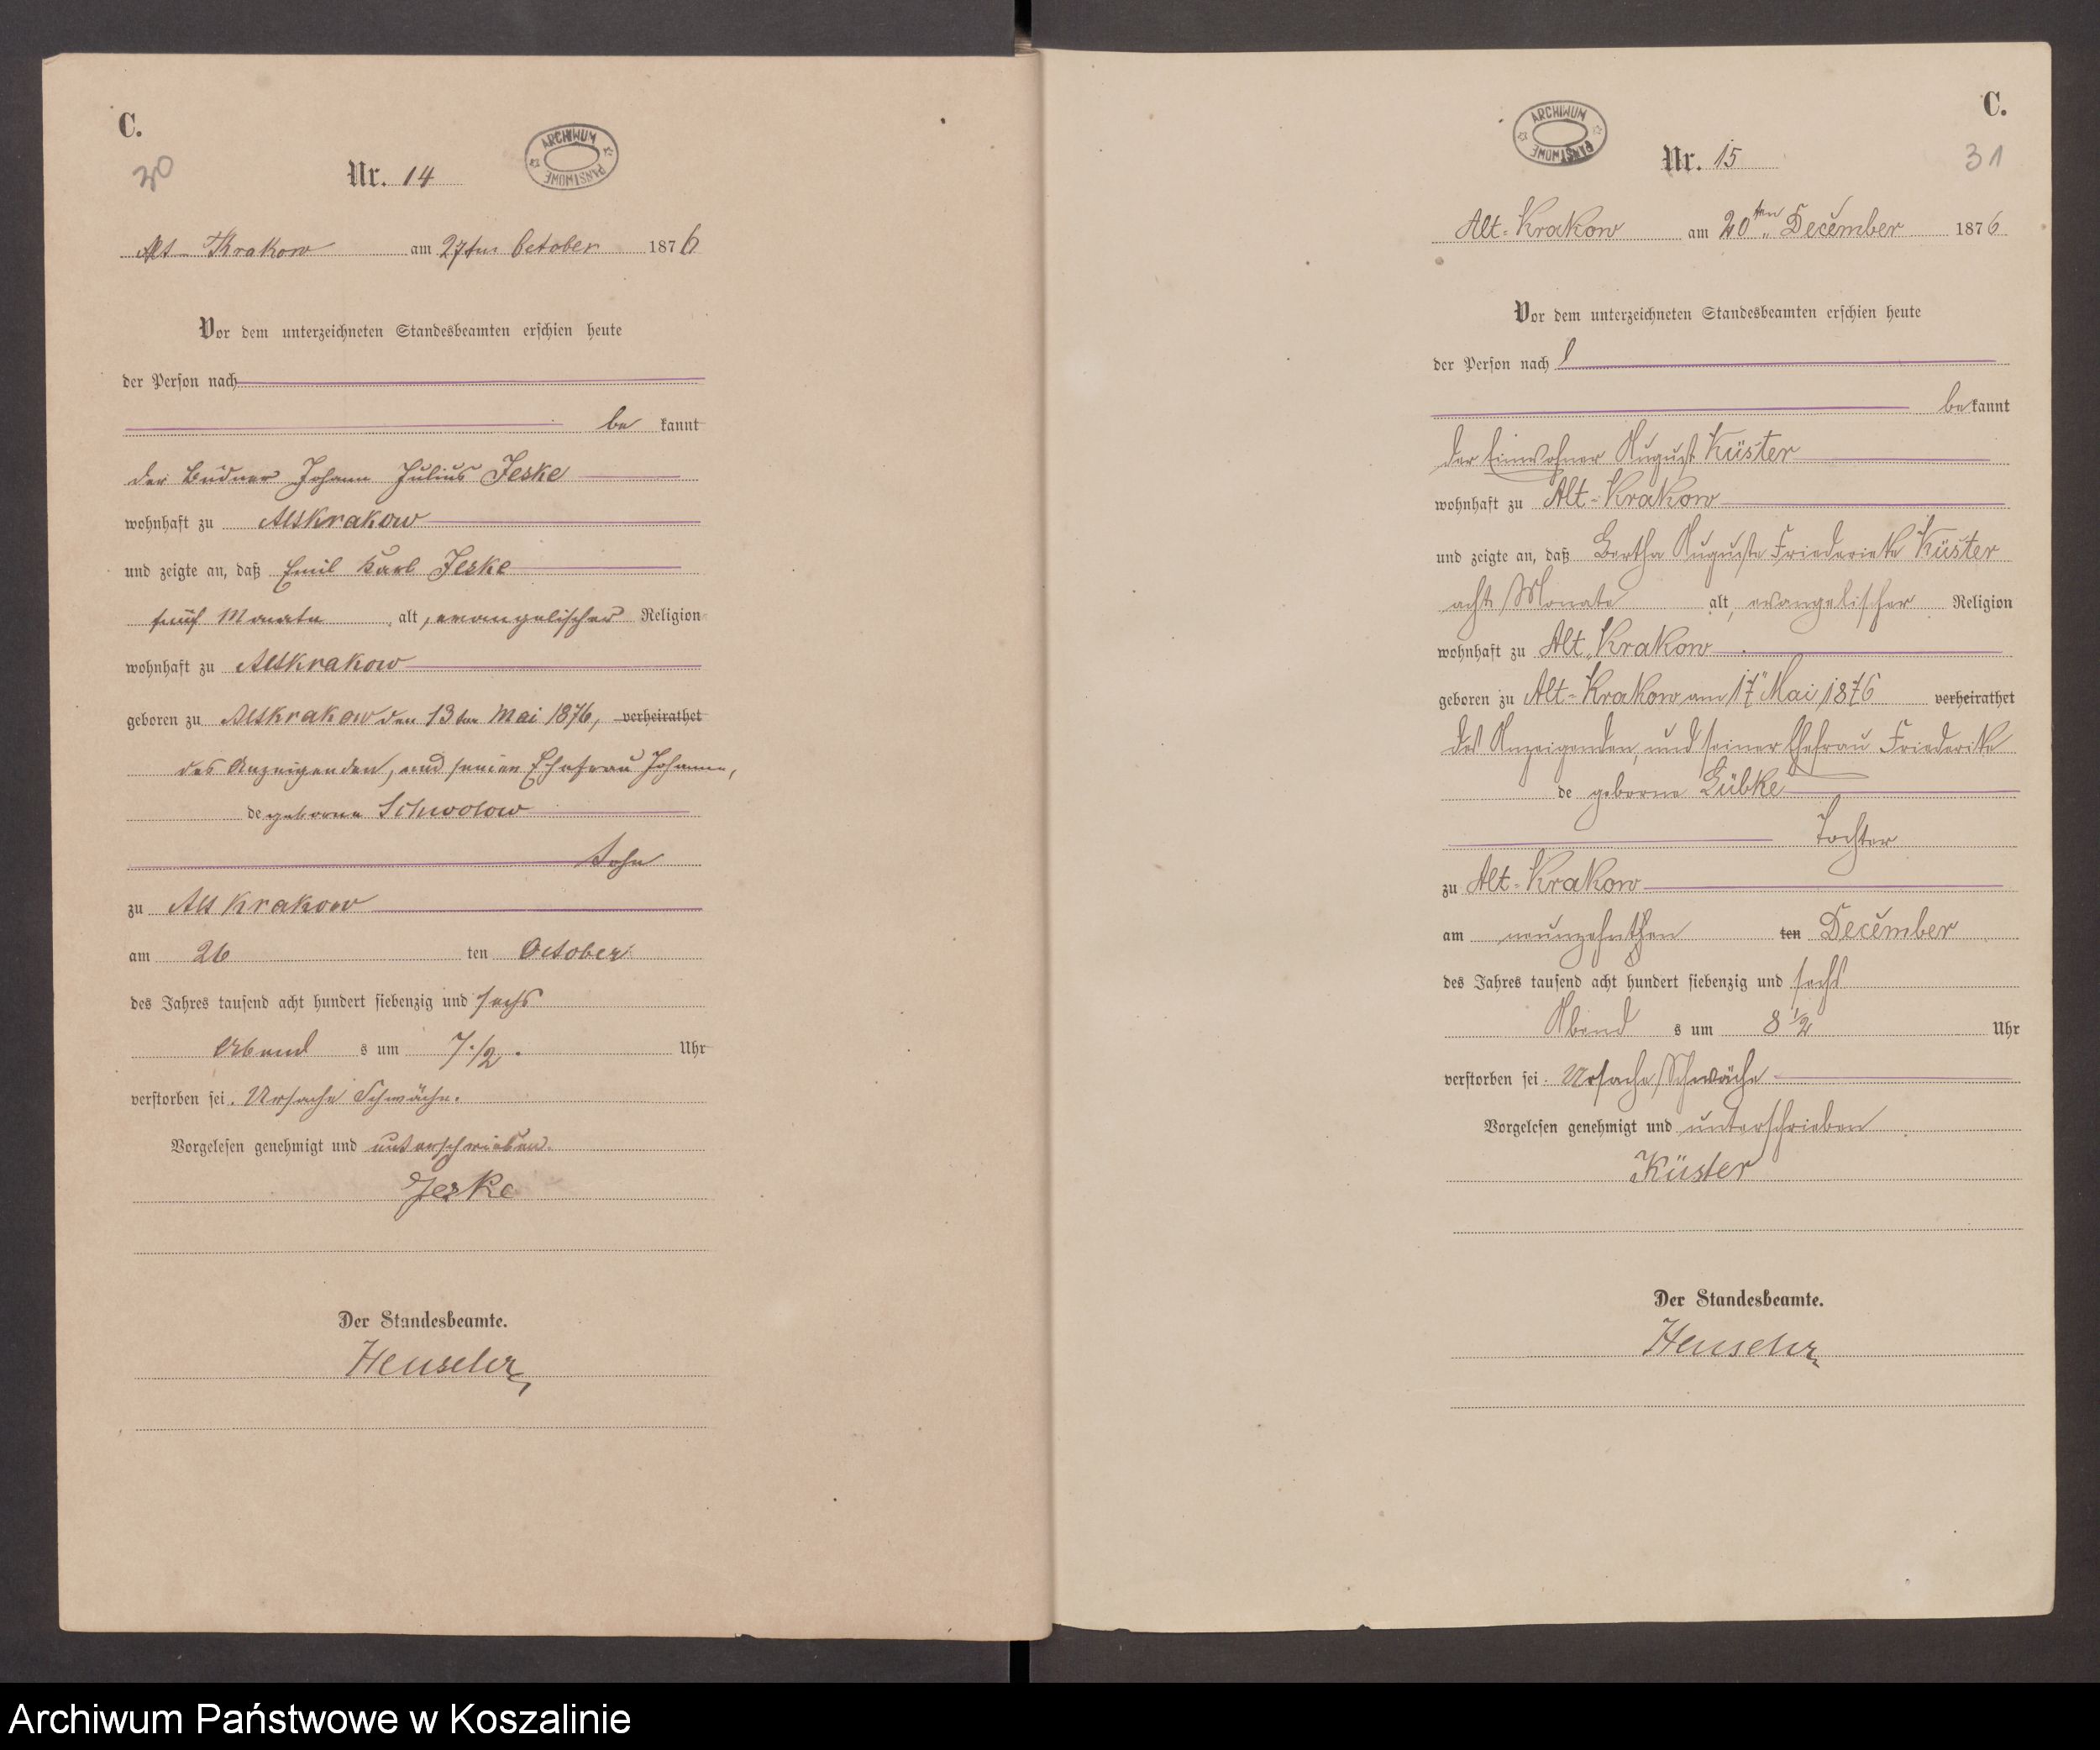 C.
30
ARCHIWUM PAŃSTWOWE
Nr. 14
Alt-Krakow am 27ten October 1876
Vor dem unterzeichneten Standesbeamten erschien heute
der Person nach
be kannt
der Büdner Johann Julius Jeske
wohnhaft zu Altkrakow
und zeigte an, daß Emil Karl Jeske
fünf Monate alt, evangelischer Religion
wohnhaft zu Altkrakow
geboren zu Altkrakow den 13ten Mai 1876, verheirathet
des Anzeigenden, und seiner Ehefrau Johanne,
de geborne Schwolow
Sohn
zu Alt Krakow
am 26 ten October
des Jahres tausend acht hundert siebenzig und sechs
Abend s um 7 1/2. Uhr
verstorben sei. Ursache Schwäche.
Vorgelesen genehmigt und unterschrieben.
Jeske
Der Standesbeamte.
C.
31
ARCHIWUM PAŃSTWOWE
Nr. 15
Alt-Krakow am 20ten December 1876
Vor dem unterzeichneten Standesbeamten erschien heute
der Person nach
bekannt
der Einwohner August Küster
wohnhaft zu Alt-Krakow
und zeigte an, daß Bertha Auguste Friederieke Küster
acht Monate alt, evangelischer Religion
wohnhaft zu Alt-Krakow
geboren zu Alt-Krakow am 17" Mai 1876 verheirathet
des Anzeigenden, und seiner Ehefrau Friederike
de geborne Lübke
Tochter
zu Alt-Krakow
am neunzehnthen ten December
des Jahres tausend acht hundert siebenzig und sechs
Abend s um 8 1/2 Uhr
verstorben sei. Ursache Schwäche
Vorgelesen genehmigt und unterschrieben
Küster
Der Standesbeamte.
Archiwum Państwowe w Koszalinie